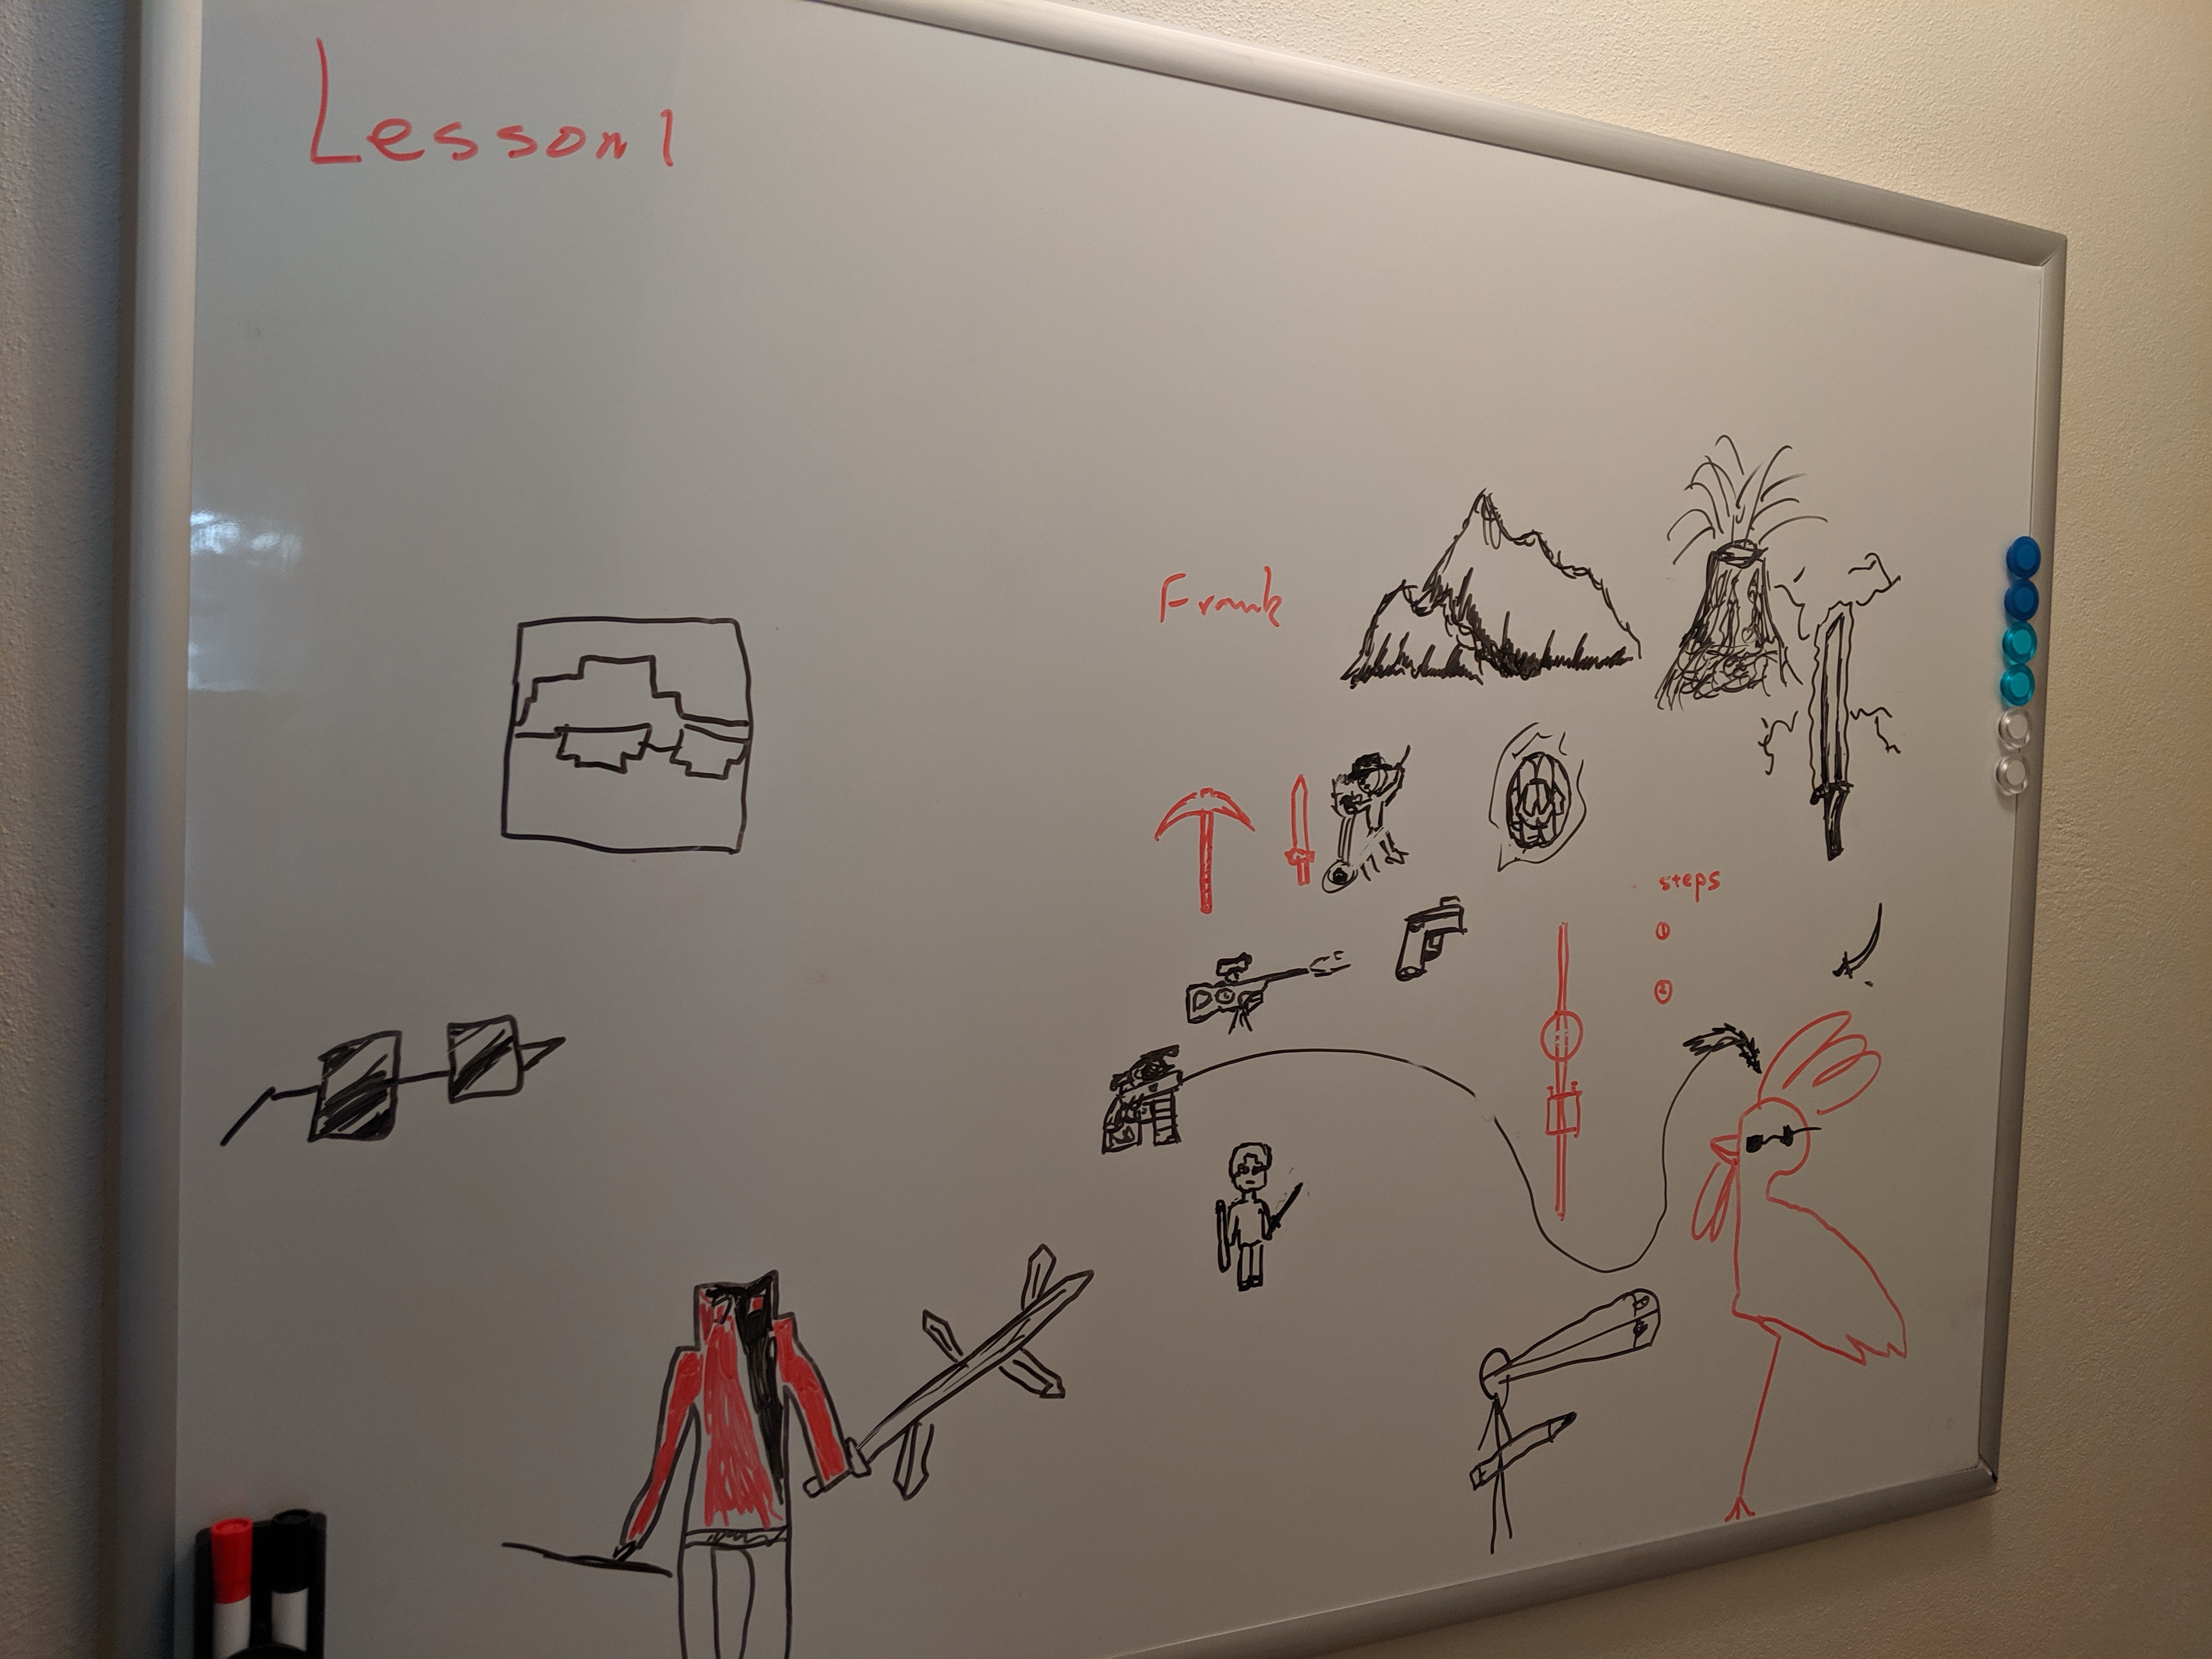 Lesson 1
Frank
steps
①
②